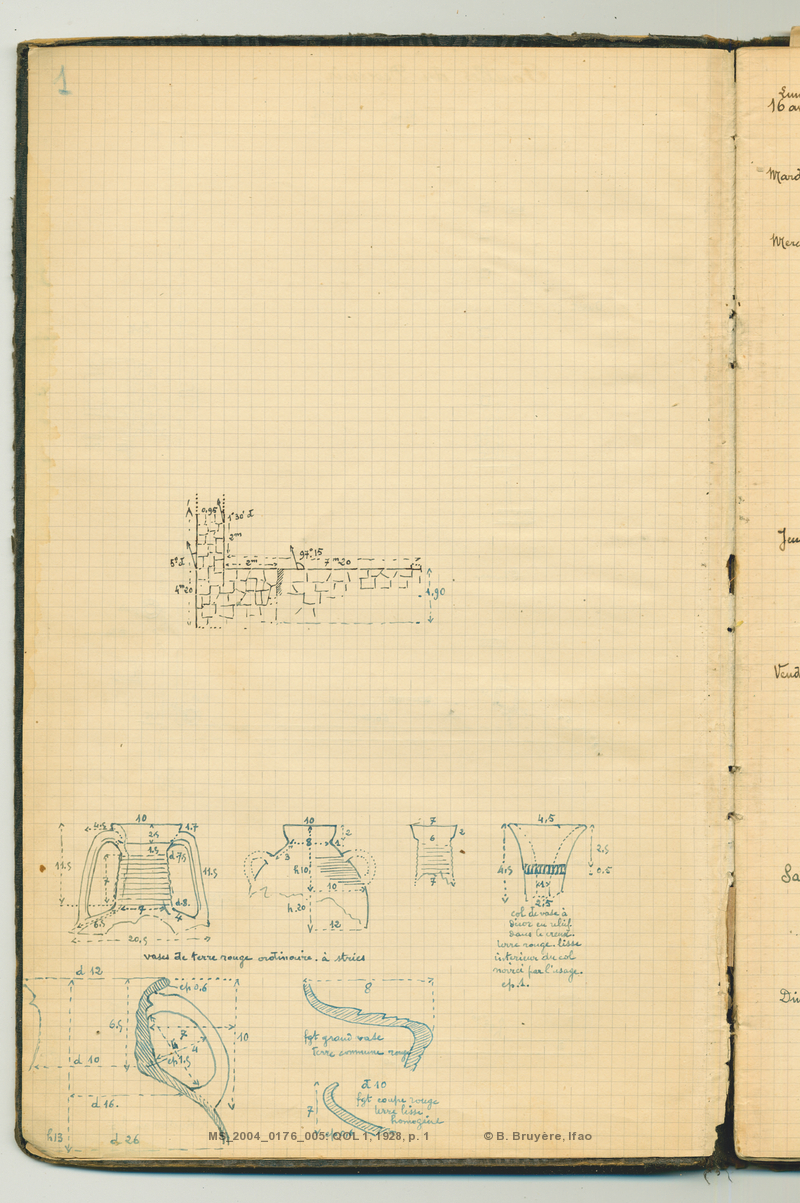 1
0,95
1° 30' d
2m
2m
97° 15
7m20
5° d
4m20
1,90
10
4,5
2,5
1.7
1.5
d 7,5
11.5
11.5
7
9
d.8.
6.5
4
20,5
10
2
8
3
h10
10
h.20
12
7
2
6
7
4,5
2,5
0.5
4,5
2.5
col de vase à
terre rouge. lisse
intérieur du col
noirci par l'usage.
ep. 1.
vases de terre rouge ordinaire. à stries
d 12
ep 0.6
6.5
7
4
10
ep 1.5
d 10
d 16.
h13
d 26
8
fgt grand vase
terre commune rouge
d 10
7
fgt coupe rouge
terre lisse
homogène
MS_2004_0176_005. QOL 1, 1928, p. 1
© B. Bruyère, Ifao
Lun
16 a
Mard
Merc
Jeu
Vend
Sa
Di